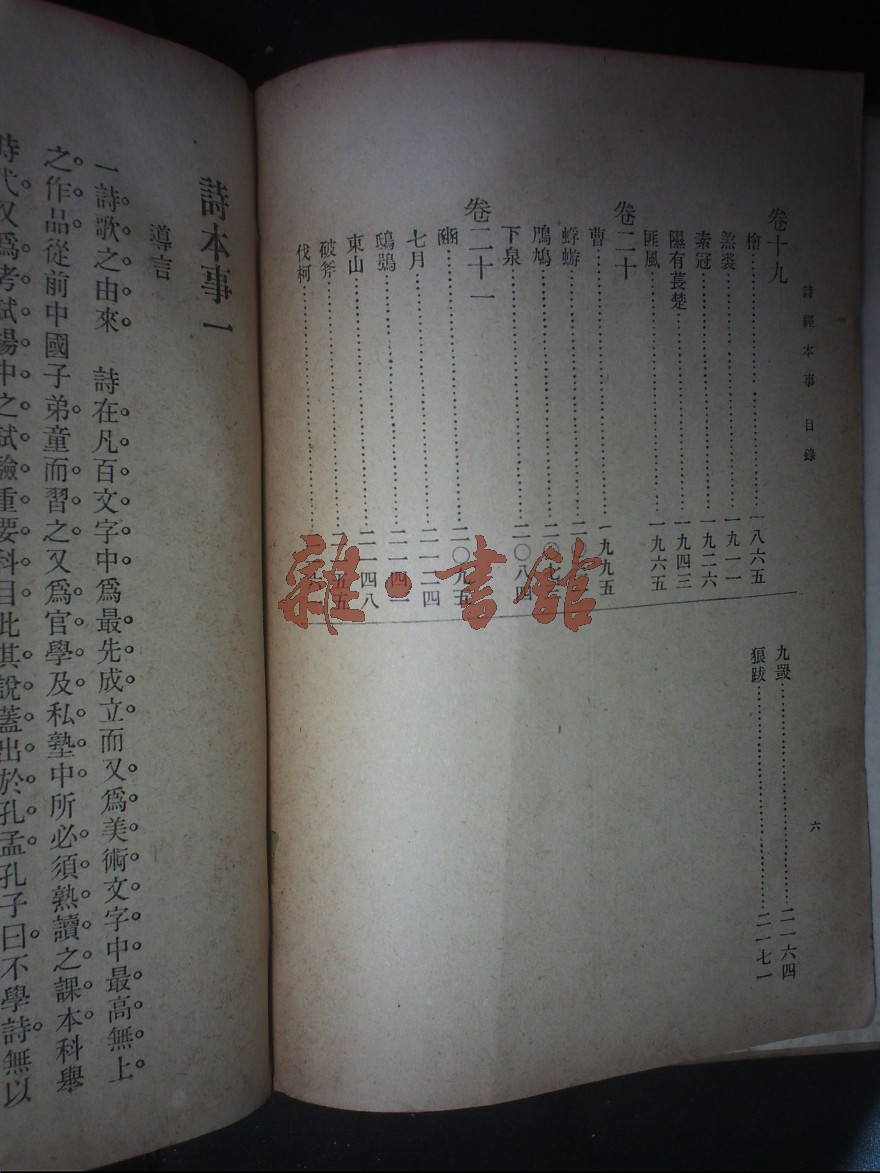 詩經本事 目錄
卷十九
檜 一八六五
羔裘 一九一一
素冠 一九二六
隰有萇楚 一九四三
匪風 一九六五
卷二十
曹 一九九五
蜉蝣
鳲鳩
下泉 二〇八四
卷二十一
豳 二〇九五
七月 二一二四
鴟鴞 二一四一
東山 二一四八
破斧
伐柯
九罭 二一六四
狼跋 二一七一
六
雜·書館
詩本事一
導言
一詩歌之由來。 詩在凡百文字中。爲最先成立。而又爲美術文字中。最高無上。
之作品。從前中國子弟。童而習之。又爲官學及私塾中。所必須熟讀之課本。科舉
時代。又爲考試場中之試驗重要科目。此其說蓋出於孔孟。孔子曰。不學詩。無以